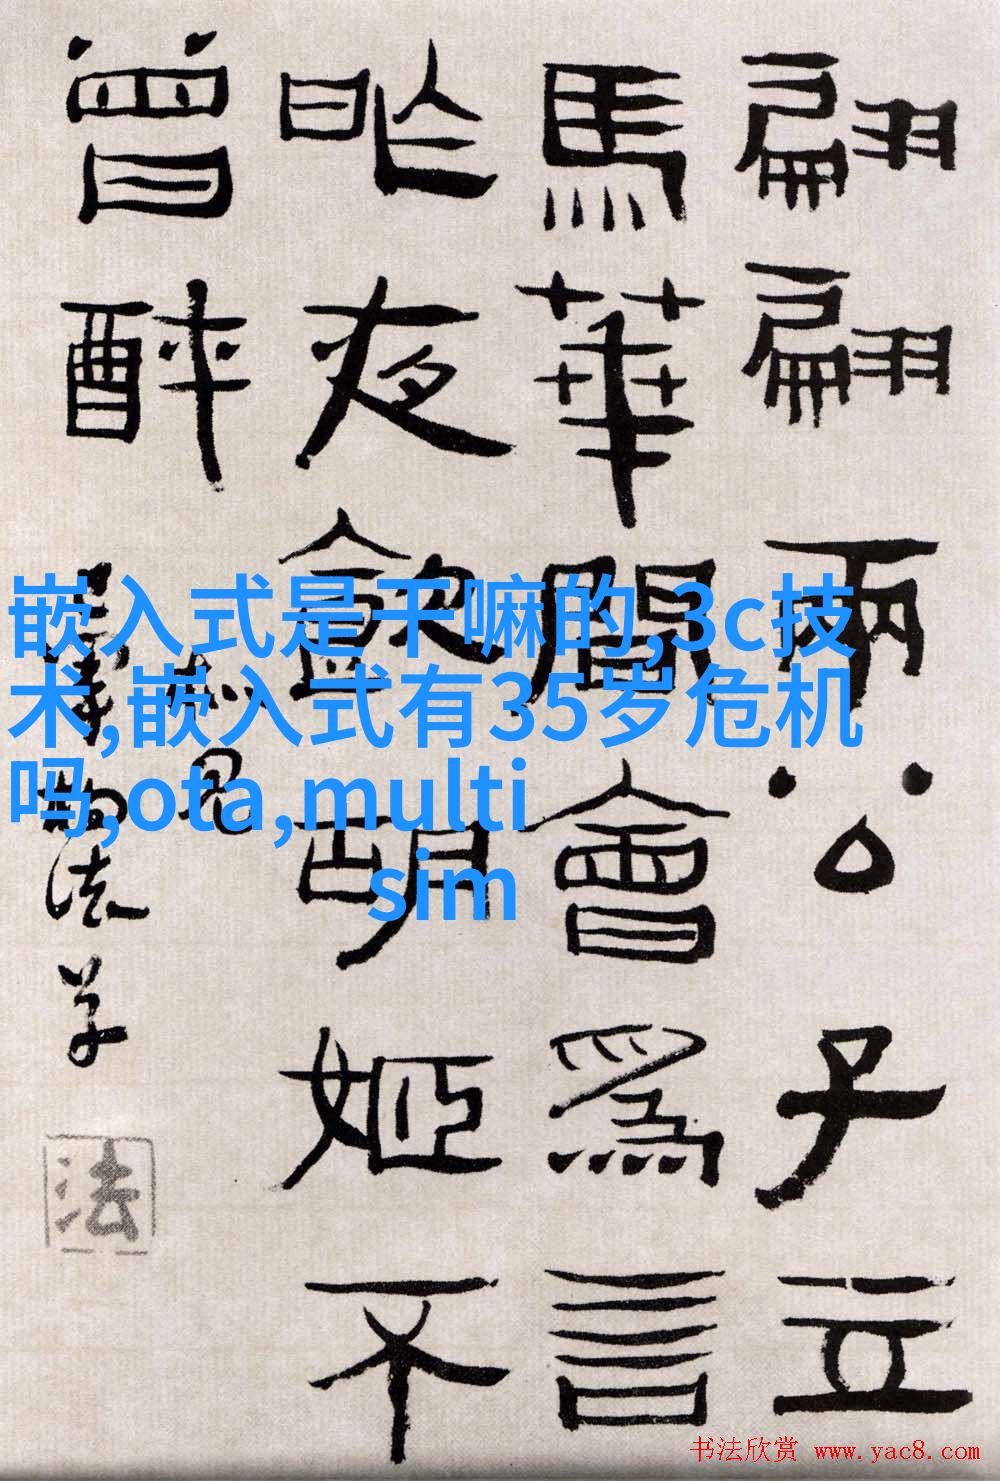 翩翩兩公子立
馬華間會為言
昨夜胡姬不
曾醉
法
嵌入式是干嘛的,3c技
术,嵌入式有35岁危机
吗,ota,multi
sim
书法欣赏 www.yac8.com